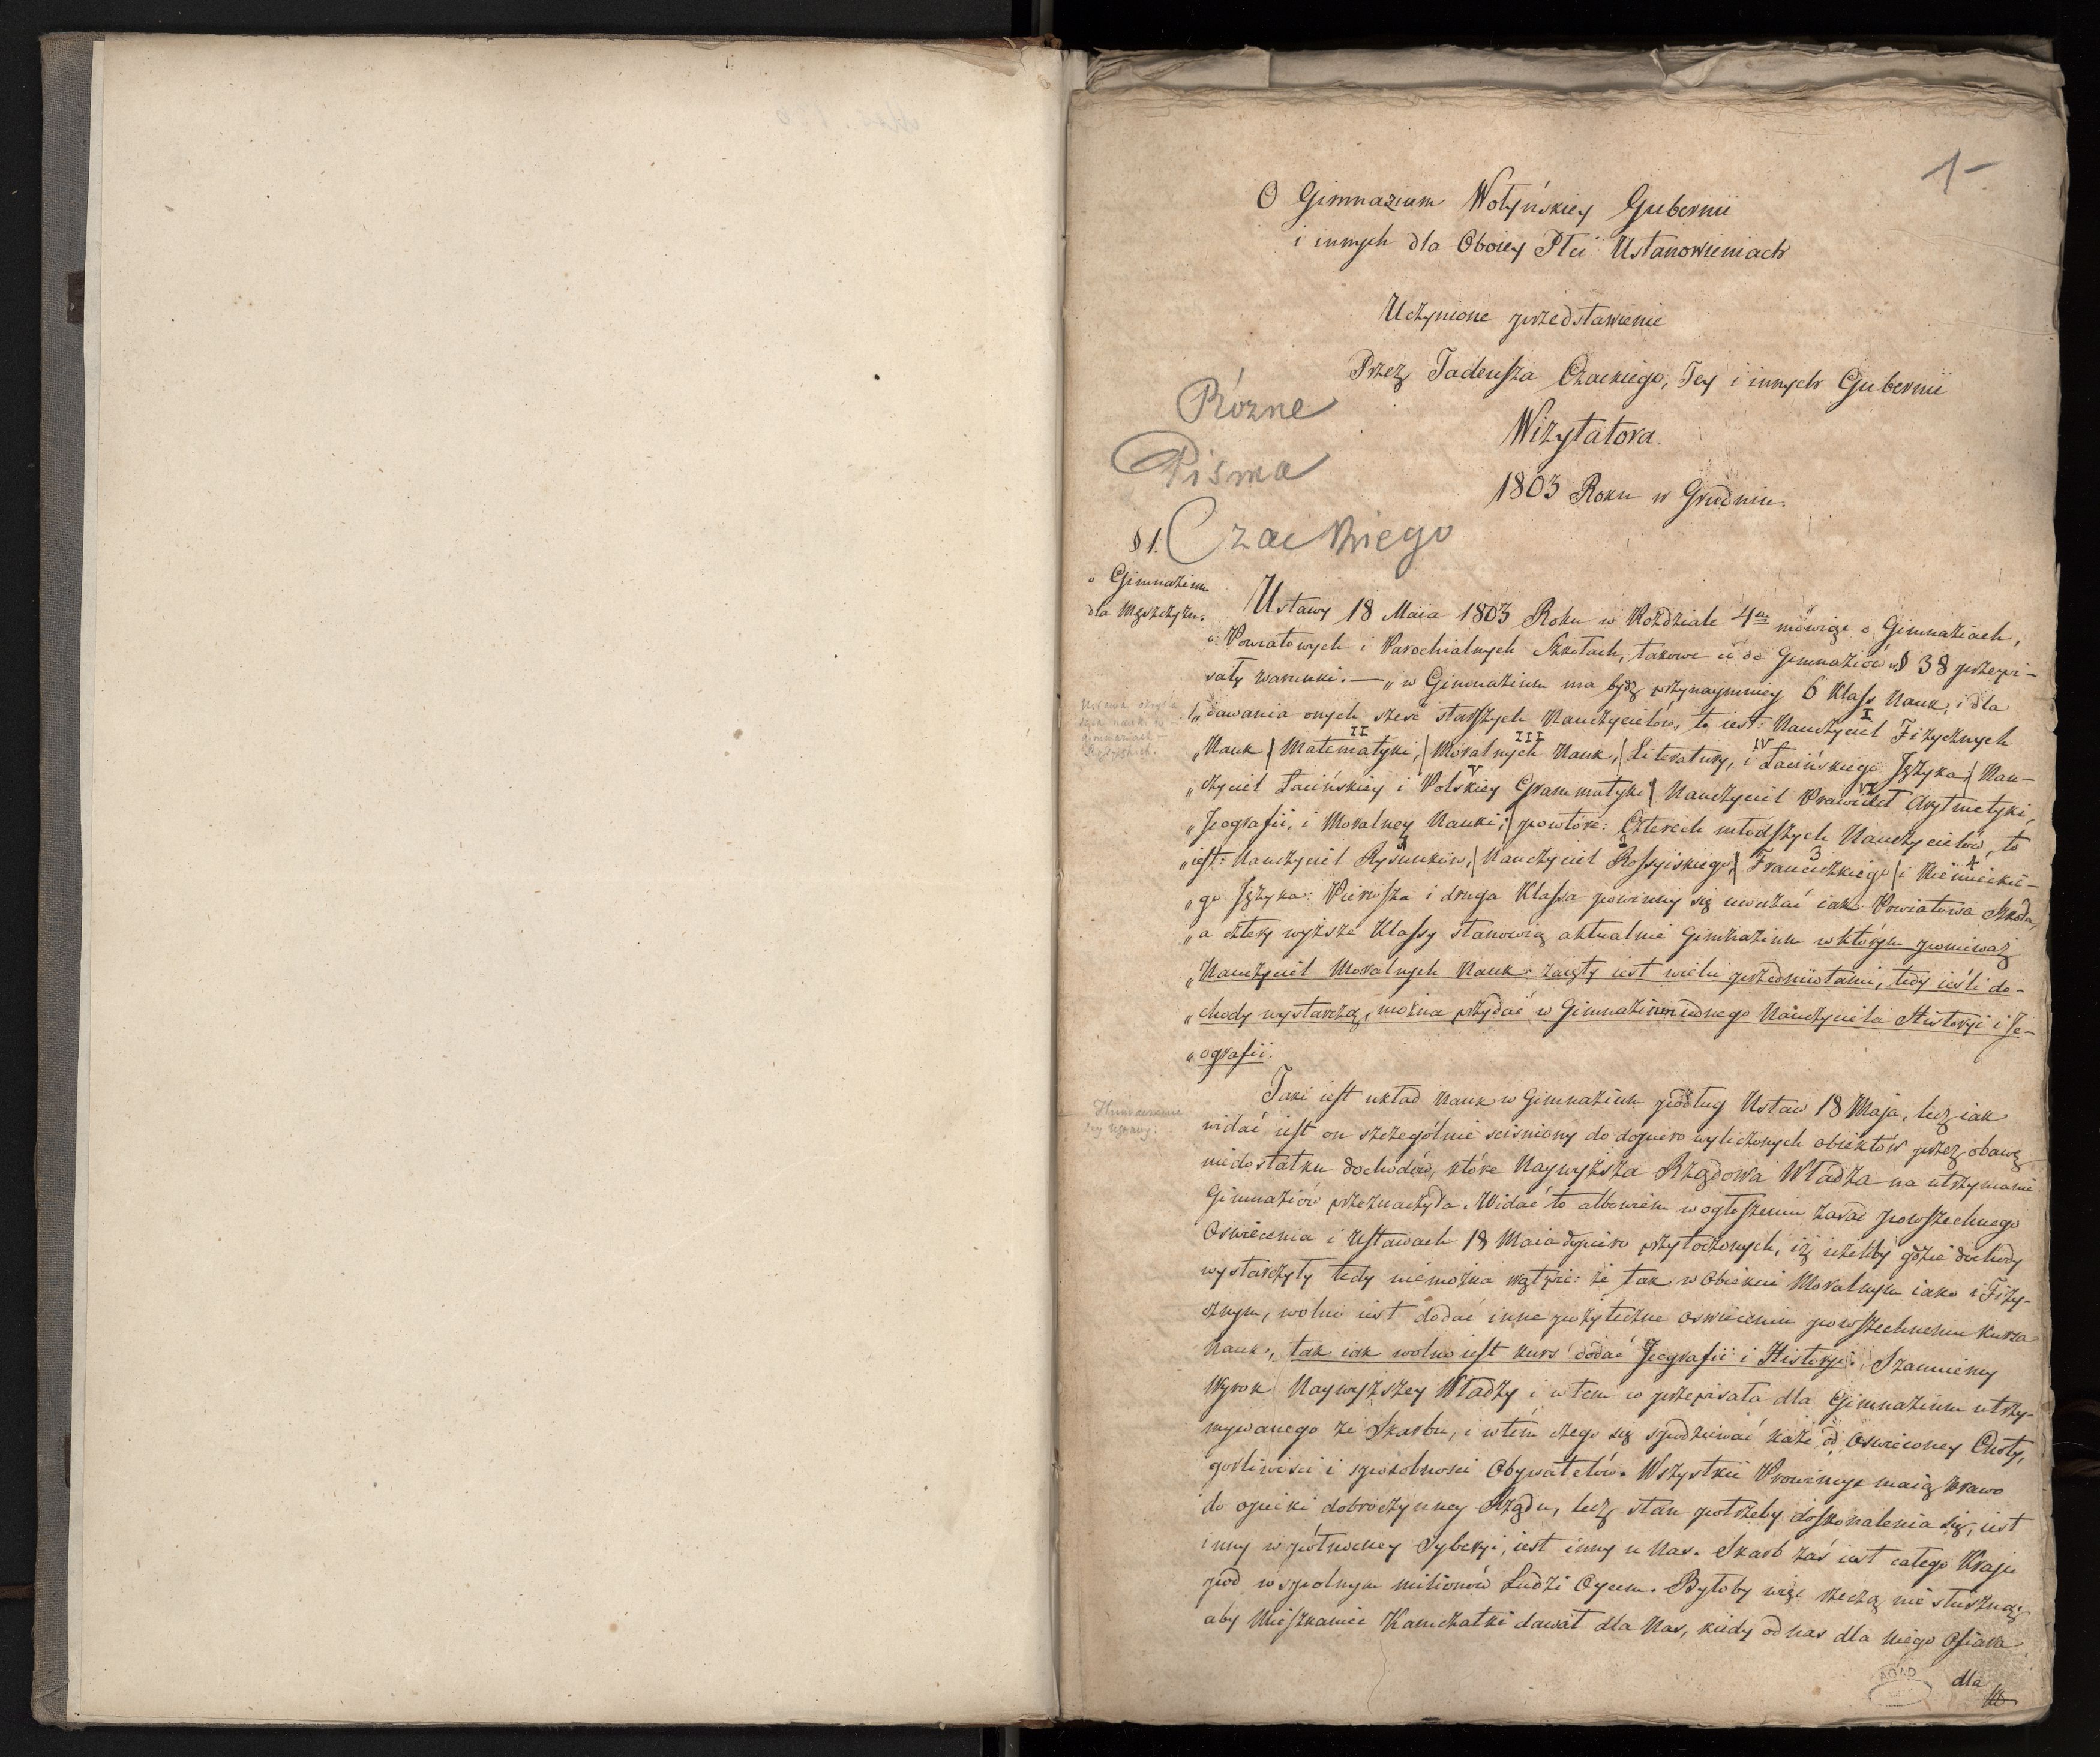 1-
O Gimnazium Wołyńskiey Gubernii
i innych dla Oboiey Płci Ustanowieniach
Uczynione przedstawienie
Przez Tadeusza Czackiego, Tey i innych Gubernii
Wizytatora.
1803 Roku w Grudniu.
Różne
Pisma
Czackiego
§ 1.
o Gimnazium
dla Męszczyzn.
Ustawy 18 Maia 1803 Roku w Rozdziale 4m mówiąc o Gimnaziach,
i Powiatowych i Parochialnych Szkołach, takowe co do Gimnaziów w § 38 przepi-
sały warunki. — „w Gimnazium ma bydź przynaymniey 6 Klass Nauk, i dla
„dawania onych sześć starszych Nauczycielów, to iest: Nauczyciel Fizycznych
I
„Nauk | Matematyki, | Moralnych Nauk, | Literatury, i Łacińskiego Języka | Nau-
II III IV
„czyciel Łacińskiey i Polskiey Grammatyki | Nauczyciel Prawideł Arytmetyki,
V VI
„Jeografii, i Moralney Nauki; | powtóre: Czterech młodszych Nauczycielów, to
„iest: Nauczyciel Rysunków, | Nauczyciel Rossyiskiego, | Francuzkiego | i Niemieckie-
1 2 3 4
„go Języka: Pierwsza i druga Klassa powinny się uważać iak Powiatowa Szkoła,
„a cztery wyższe Klassy stanowią aktualnie Gimnazium w którym ponieważ
„Nauczyciel Moralnych Nauk zaięty iest wielu przedmiotami, tedy ieśli do-
„chody wystarczą, można przydać w Gimnazium iednego Nauczyciela Historyi i Je-
„ografii.
Taki iest układ Nauk w Gimnazium podług Ustaw 18 Maja, lecz iak
widać iest on szczególnie sciśniony do dopiero wyliczonych obiektów przez obawę
niedostatku dochodów, które Naywyższa Rządowa Władza na utrzymanie
Gimnaziów przeznaczyła. Widać to albowiem w ogłoszeniu zasad powszechnego
Oświecenia i Ustawach 18 Maia dopiero przytoczonych, iż ieżeliby gdzie dochody
wystarczyły tedy niemożna wątpić: że tak w Obiekcie Moralnym iako i Fizy-
cznym, wolno iest dodać inne pożyteczne oświeceniu powszechnemu kursa
Nauk, tak iak wolno iest kurs dodać Jeografii i Historyi. Szanuiemy
Wyrok Naywyższey Władzy i w tem co przepisała dla Gimnazium utrzy-
mywanego ze Skarbu, i w tém czego się spodziewać każe od Oświeconey Cnoty,
gorliwości i sposobności Obywatelów. Wszystkie Prowincye maią prawo
do opieki dobroczynney Rządu, lecz stan potrzeby doskonalenia się, iest
inny w północney Syberyi, iest inny u Nas. Skarb zaś iest całego Kraju
pod wspólnym milionów Ludzi Oycem. Byłoby więc rzeczą nie słuszną;
aby Mieszkaniec Kamczatki dawał dla Nas, kiedy od nas dla Niego Ofiara
dla